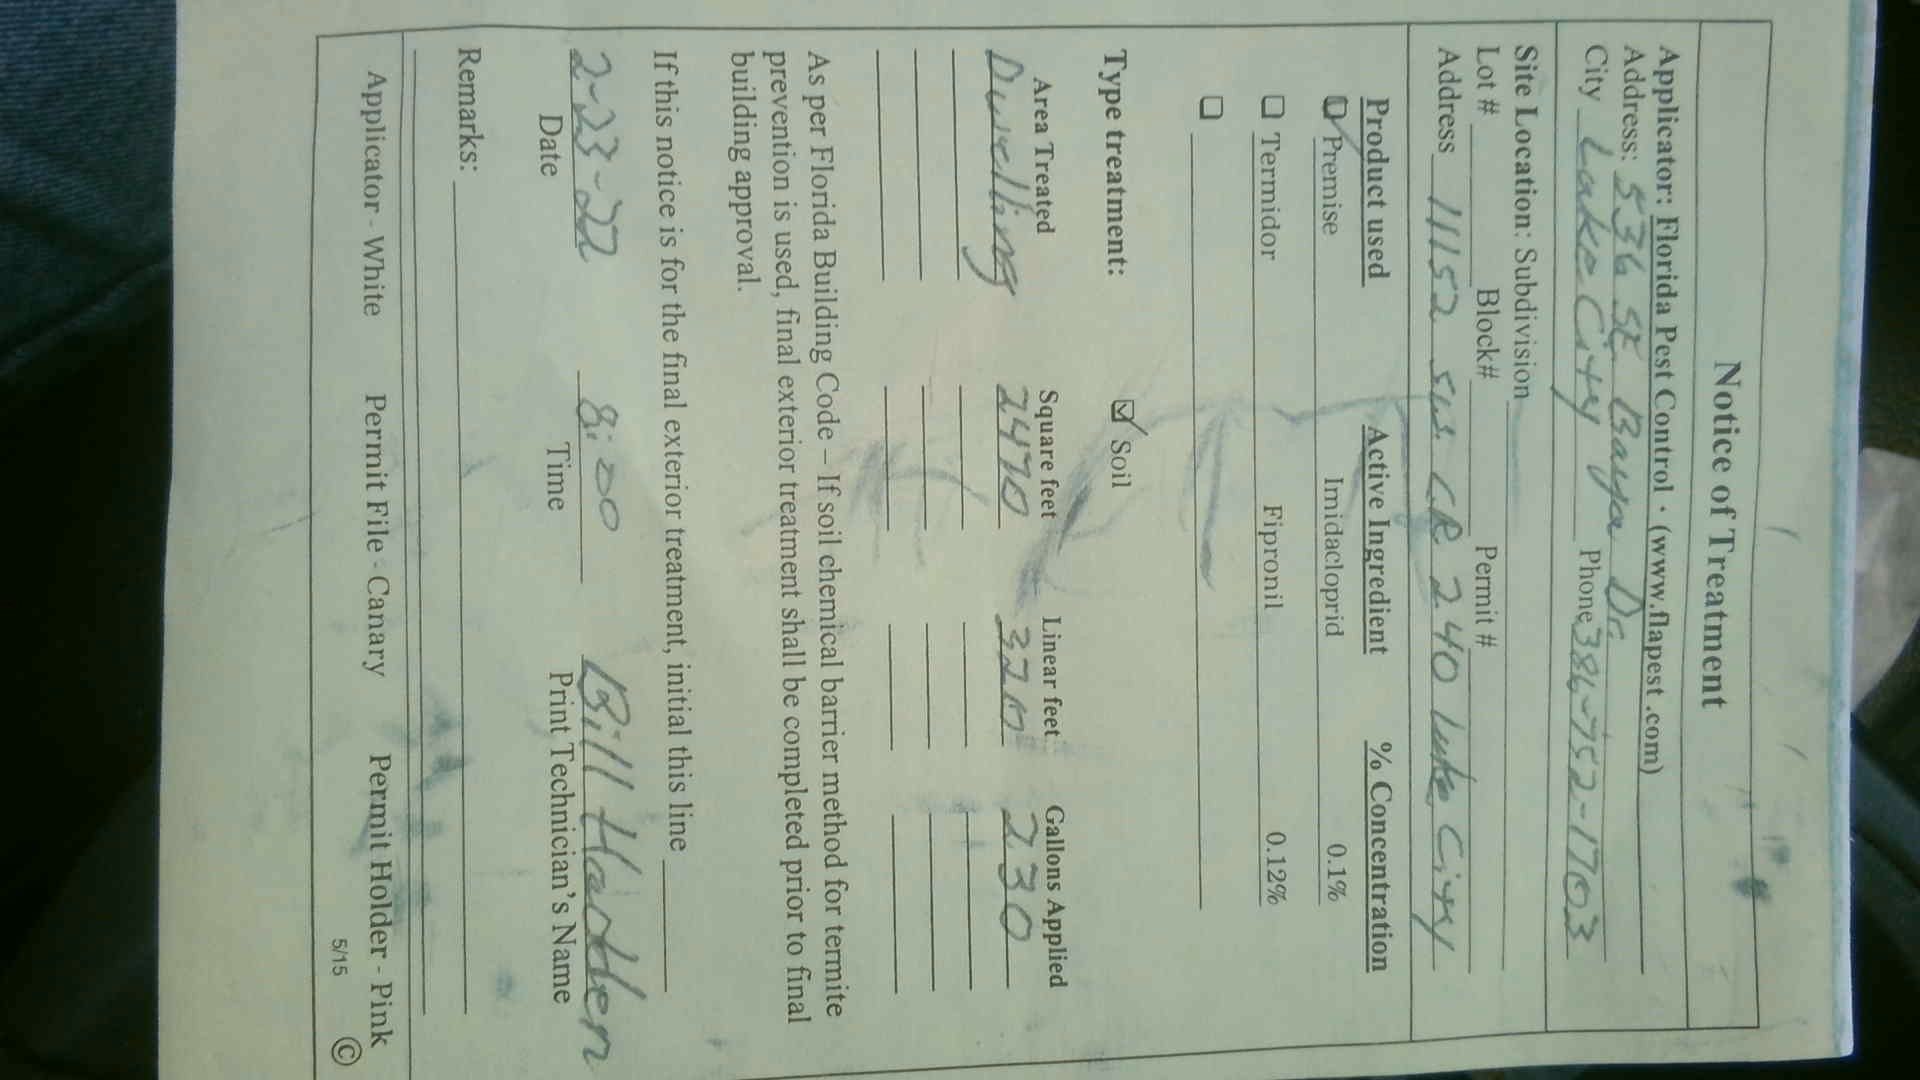 Notice of Treatment
Applicator: Florida Pest Control • (www.flapest.com)
Address: 536 SE Baya Dr
City Lake City Phone 386-752-1703
Site Location: Subdivision
Lot # Block# Permit #
Address 11152 SW CR 240 Lake City
Product used Active Ingredient % Concentration
☑ Premise Imidacloprid 0.1%
☐ Termidor Fipronil 0.12%
☐
Type treatment: ☑ Soil
Area Treated Square feet Linear feet Gallons Applied
Dwelling 2470 230
As per Florida Building Code – If soil chemical barrier method for termite
prevention is used, final exterior treatment shall be completed prior to final
building approval.
If this notice is for the final exterior treatment, initial this line
2-23-22 8:00 Bill Hadden
Date Time Print Technician's Name
Remarks:
Applicator - White Permit File - Canary Permit Holder - Pink
5/15 ©